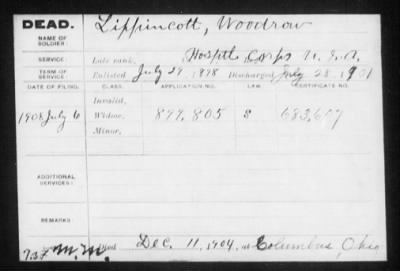 DEAD.
NAME OF SOLDIER: Lippincott, Woodrow
SERVICE: Late rank, Hospital Corps U.S.A.
TERM OF SERVICE: Enlisted July 29, 1898 Discharged July 28 1901
DATE OF FILING. CLASS. APPLICATION NO. LAW. CERTIFICATE NO.
Invalid,
1908 July 6 Widow, 899,805 683,607
Minor,
ADDITIONAL SERVICES:
REMARKS:
Died Dec. 11, 1904, at Columbus, Ohio